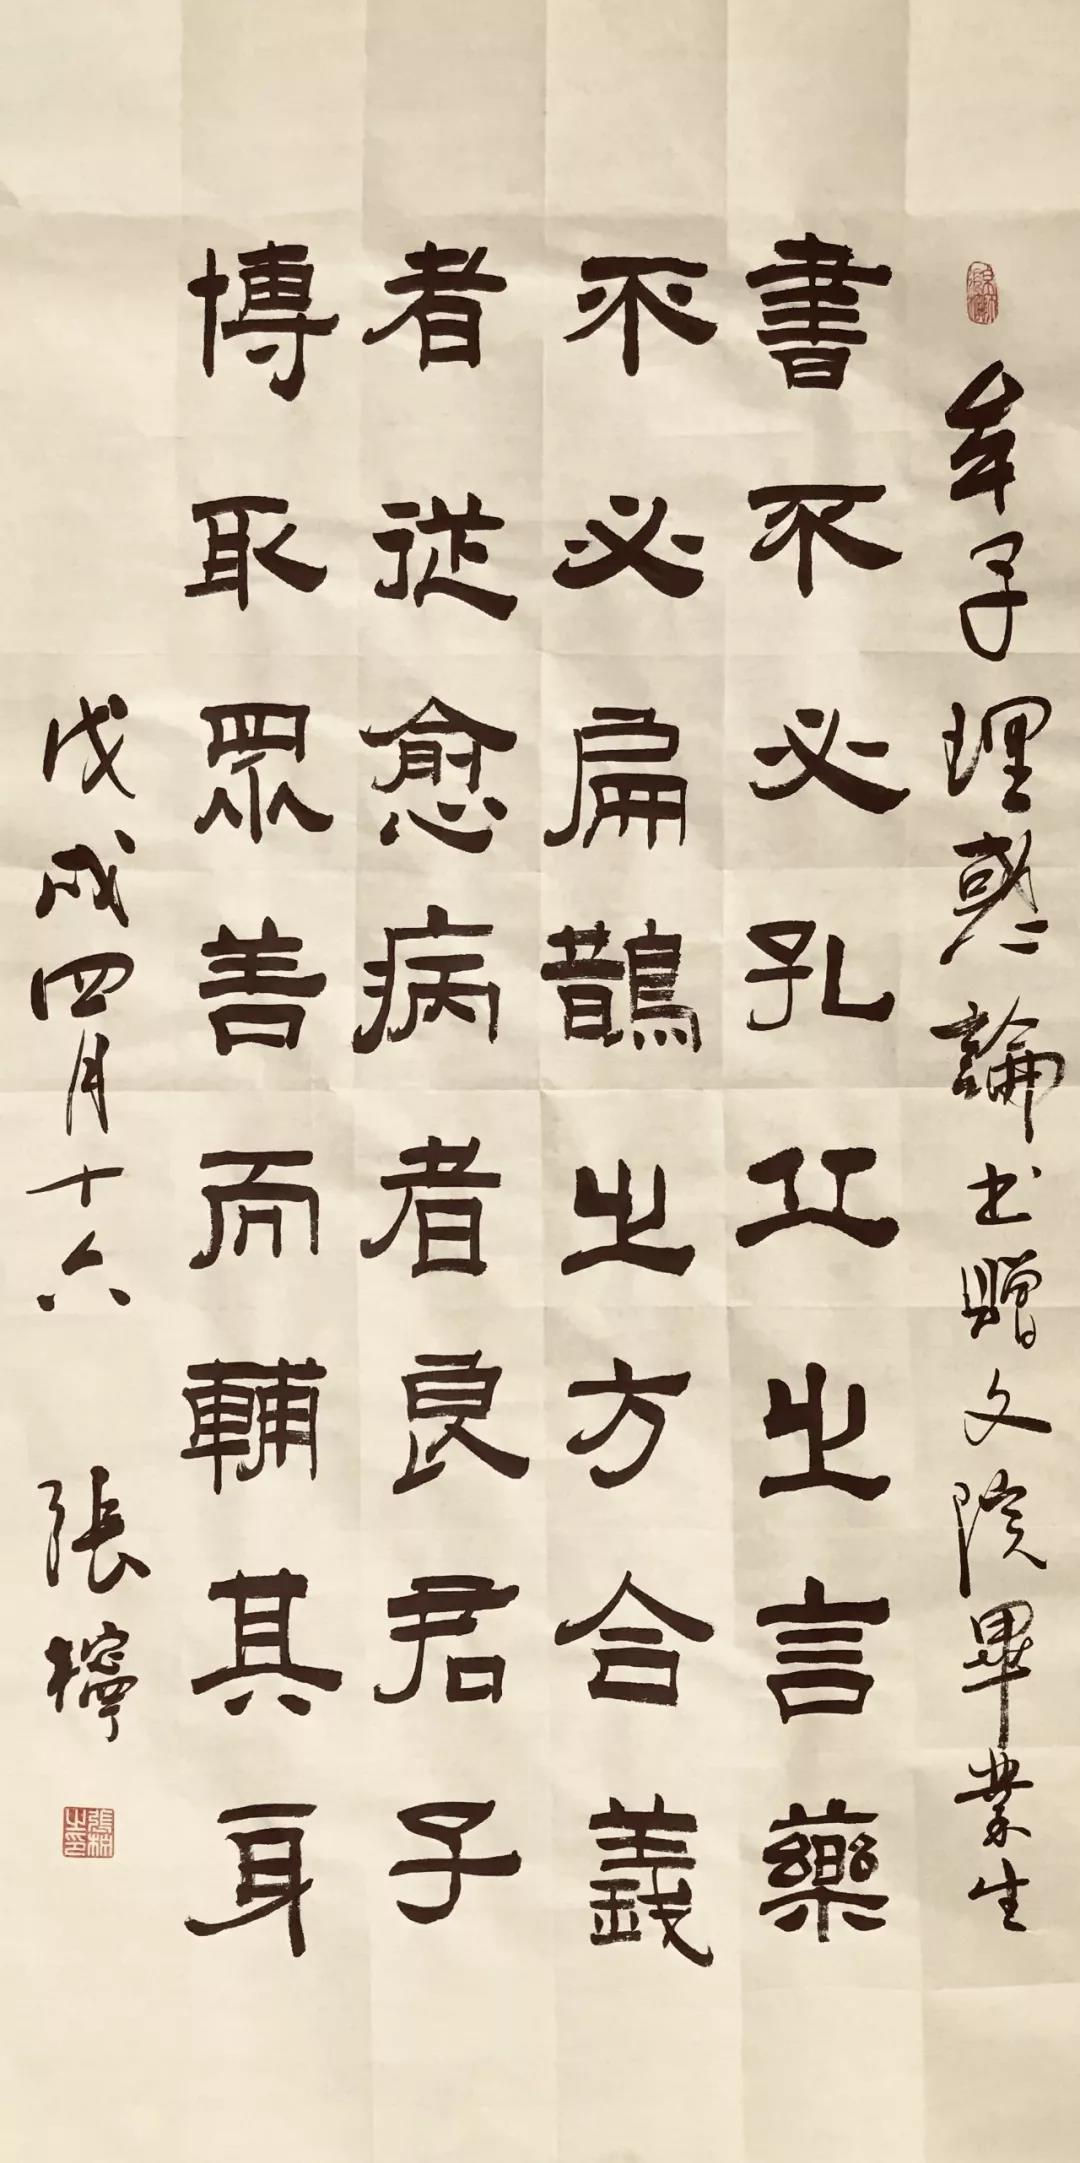 牟子理惑論书贈文院畢業生
書不必孔丘之言藥
不必扁鵲之方合義
者從愈病者良君子
博取眾善而輔其身
戊戌四月十六 張檸